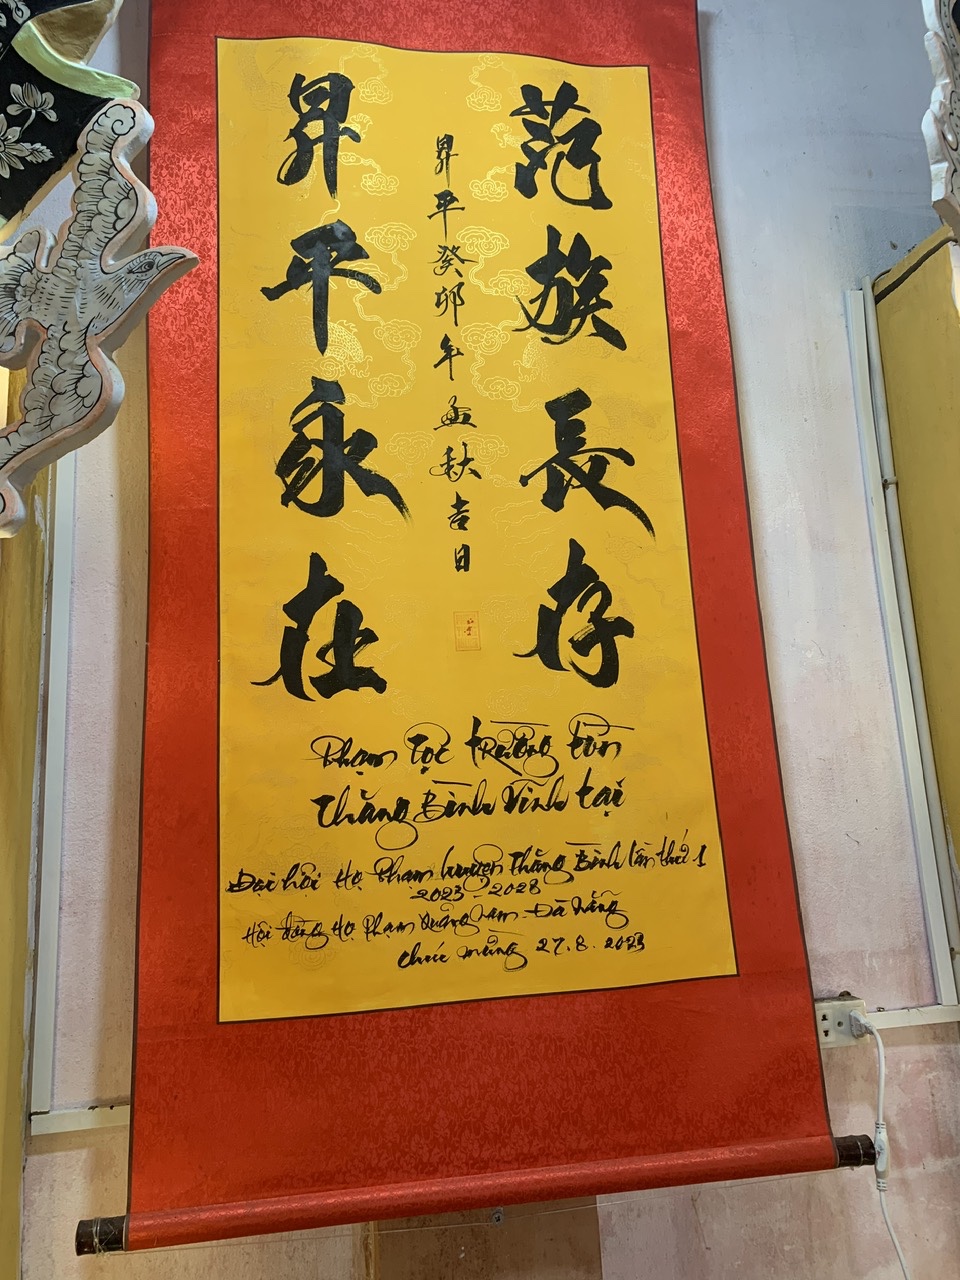 范族長存
昇平癸卯年孟秋吉日
昇平永在
Phạm Tộc trường tồn
Thăng Bình Vĩnh tại
Đại hội Họ Phạm huyện Thăng Bình lần thứ 1
2023-2028
Hội đồng Họ Phạm Quảng Nam-Đà Nẵng
chúc mừng 27.8.2023